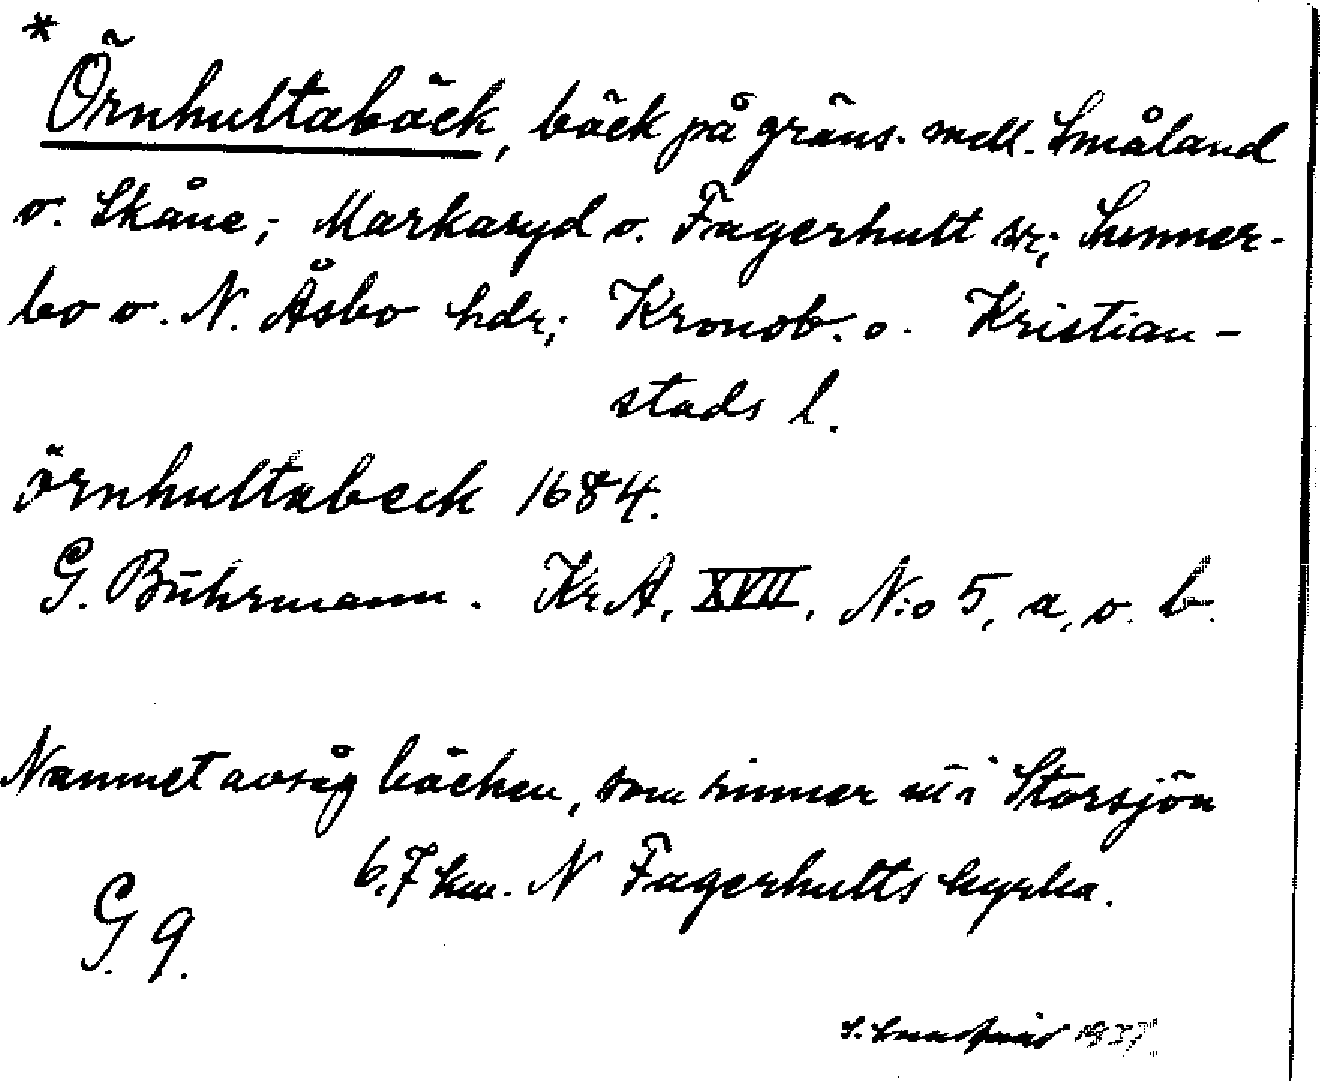 *
Örnhultabäck, bäck på gräns. mell. Småland
o. Skåne; Markaryd o. Fagerhult sr; Sunner-
bo o. N. Åsbo hdr; Kronob. o. Kristian-
stads l.
örnhultabeck 1684.
G. Buhrmann. KrA, XVII, N:o 5, a, o. b.
Namnet avsåg bäcken, som rinner ut i Storsjön
6,7 km. N Fagerhults kyrka.
G 9.
1937